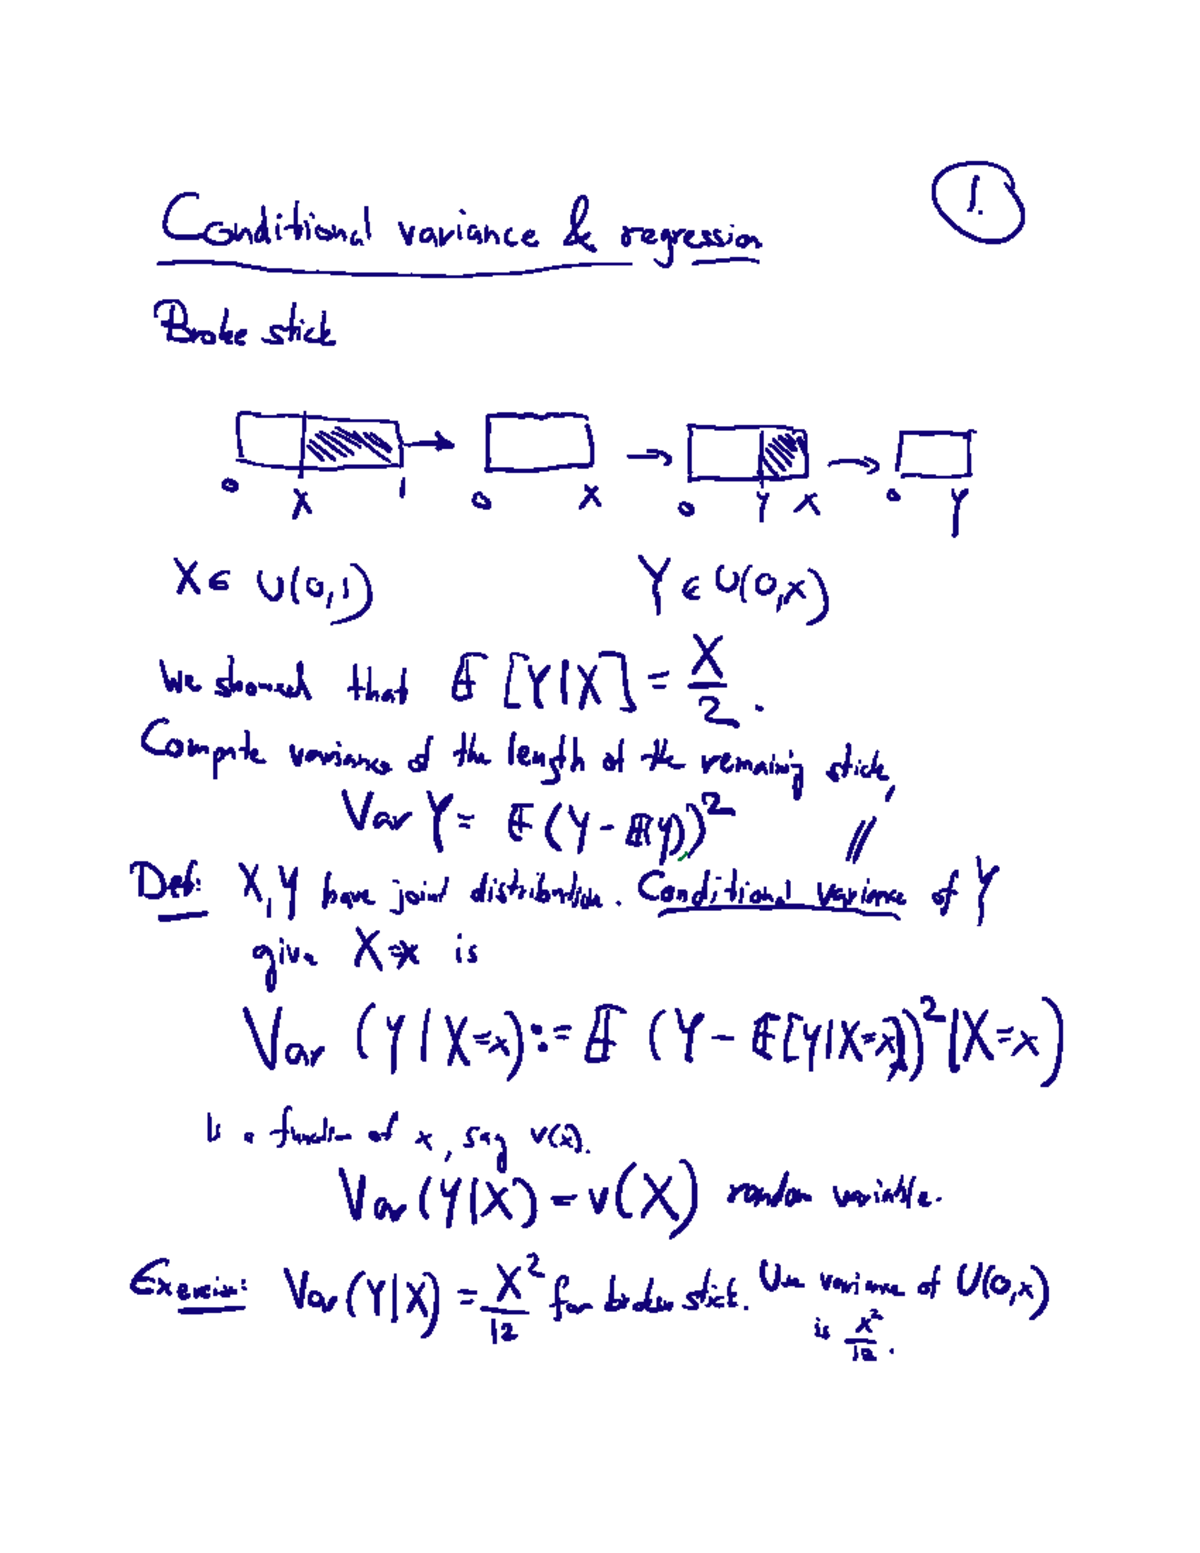 1.
Conditional variance & regression
Broke stick
0 X 1 0 X 0 Y X 0 Y
X ∈ U(0,1) Y ∈ U(0,x)
We showed that E[Y|X] = X/2.
Compute variance of the length of the remaining stick,
Var Y = E(Y - E(Y))² //
Def: X,Y have joint distribution. Conditional variance of Y
give X=x is
Var (Y|X=x) := E (Y - E[Y|X=x])²|X=x)
Is a function of x, say v(x).
Var(Y|X) = v(X) random variable.
Exercise: Var(Y|X) = X²/12 for broken stick. Use variance of U(0,x)
is x²/12.